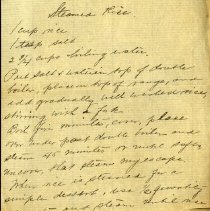 Steamed Rice
1 cup rice
1 tsp salt
2 3/4 cups boiling water
Put salt & water in top of double
boiler, place on top of range, and
add gradually well washed rice,
stirring with a fork
Boil five minutes, cover, place
over under part double boiler and
steam 45 minutes or until soft,
uncover that steam may escape.
When rice is steamed for a
simple dessert, use
steam until rice